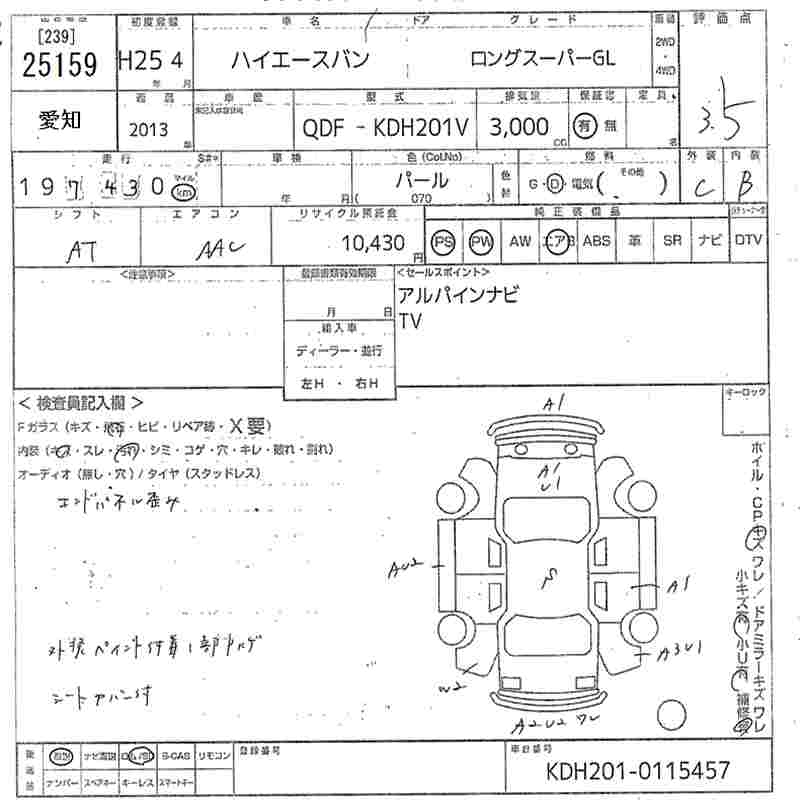 [239]
25159
初度登録
H25 4
年 月
車名
ハイエースバン
ドア
グレード
ロングスーパーGL
2WD
4WD
評価点
3.5
愛知
2013
型式
QDF - KDH201V
排気量
3,000
CC
保証書
有 無
定員
名
走行
197430
マイル
km
車検
年 月
色(Col.No)
パール
(070)
色替
燃料
G・D・電気( その他 )
外装
C
内装
B
シフト
AT
エアコン
AAC
リサイクル預託金
10,430
円
純正装備品
PS PW AW エアB ABS 革 SR ナビ DTV
<注意事項>
登録書類有効期限
月 日
輸入車
ディーラー・並行
左H ・ 右H
<セールスポイント>
アルパインナビ
TV
キーロック
<検査員記入欄>
Fガラス(キズ・飛石・ヒビ・リペア跡・X要)
内装(キズ・スレ・汚れ・シミ・コゲ・穴・キレ・破れ・割れ)
オーディオ(無し・穴)/タイヤ(スタッドレス)
エンドパネル歪み
外装ペイント付着1部ハゲ
A1
A1
U1
AU2
S
A1
A3U1
W2
A2U2
ホイル・CPキズワレ/ドアミラーキズワレ
小キズ有 小U有 補修要
後送品
取説 ナビ取説 B-CAS リモコン
ナンバー スペアキー キーレス スマートキー
登録番号
車台番号
KDH201-0115457